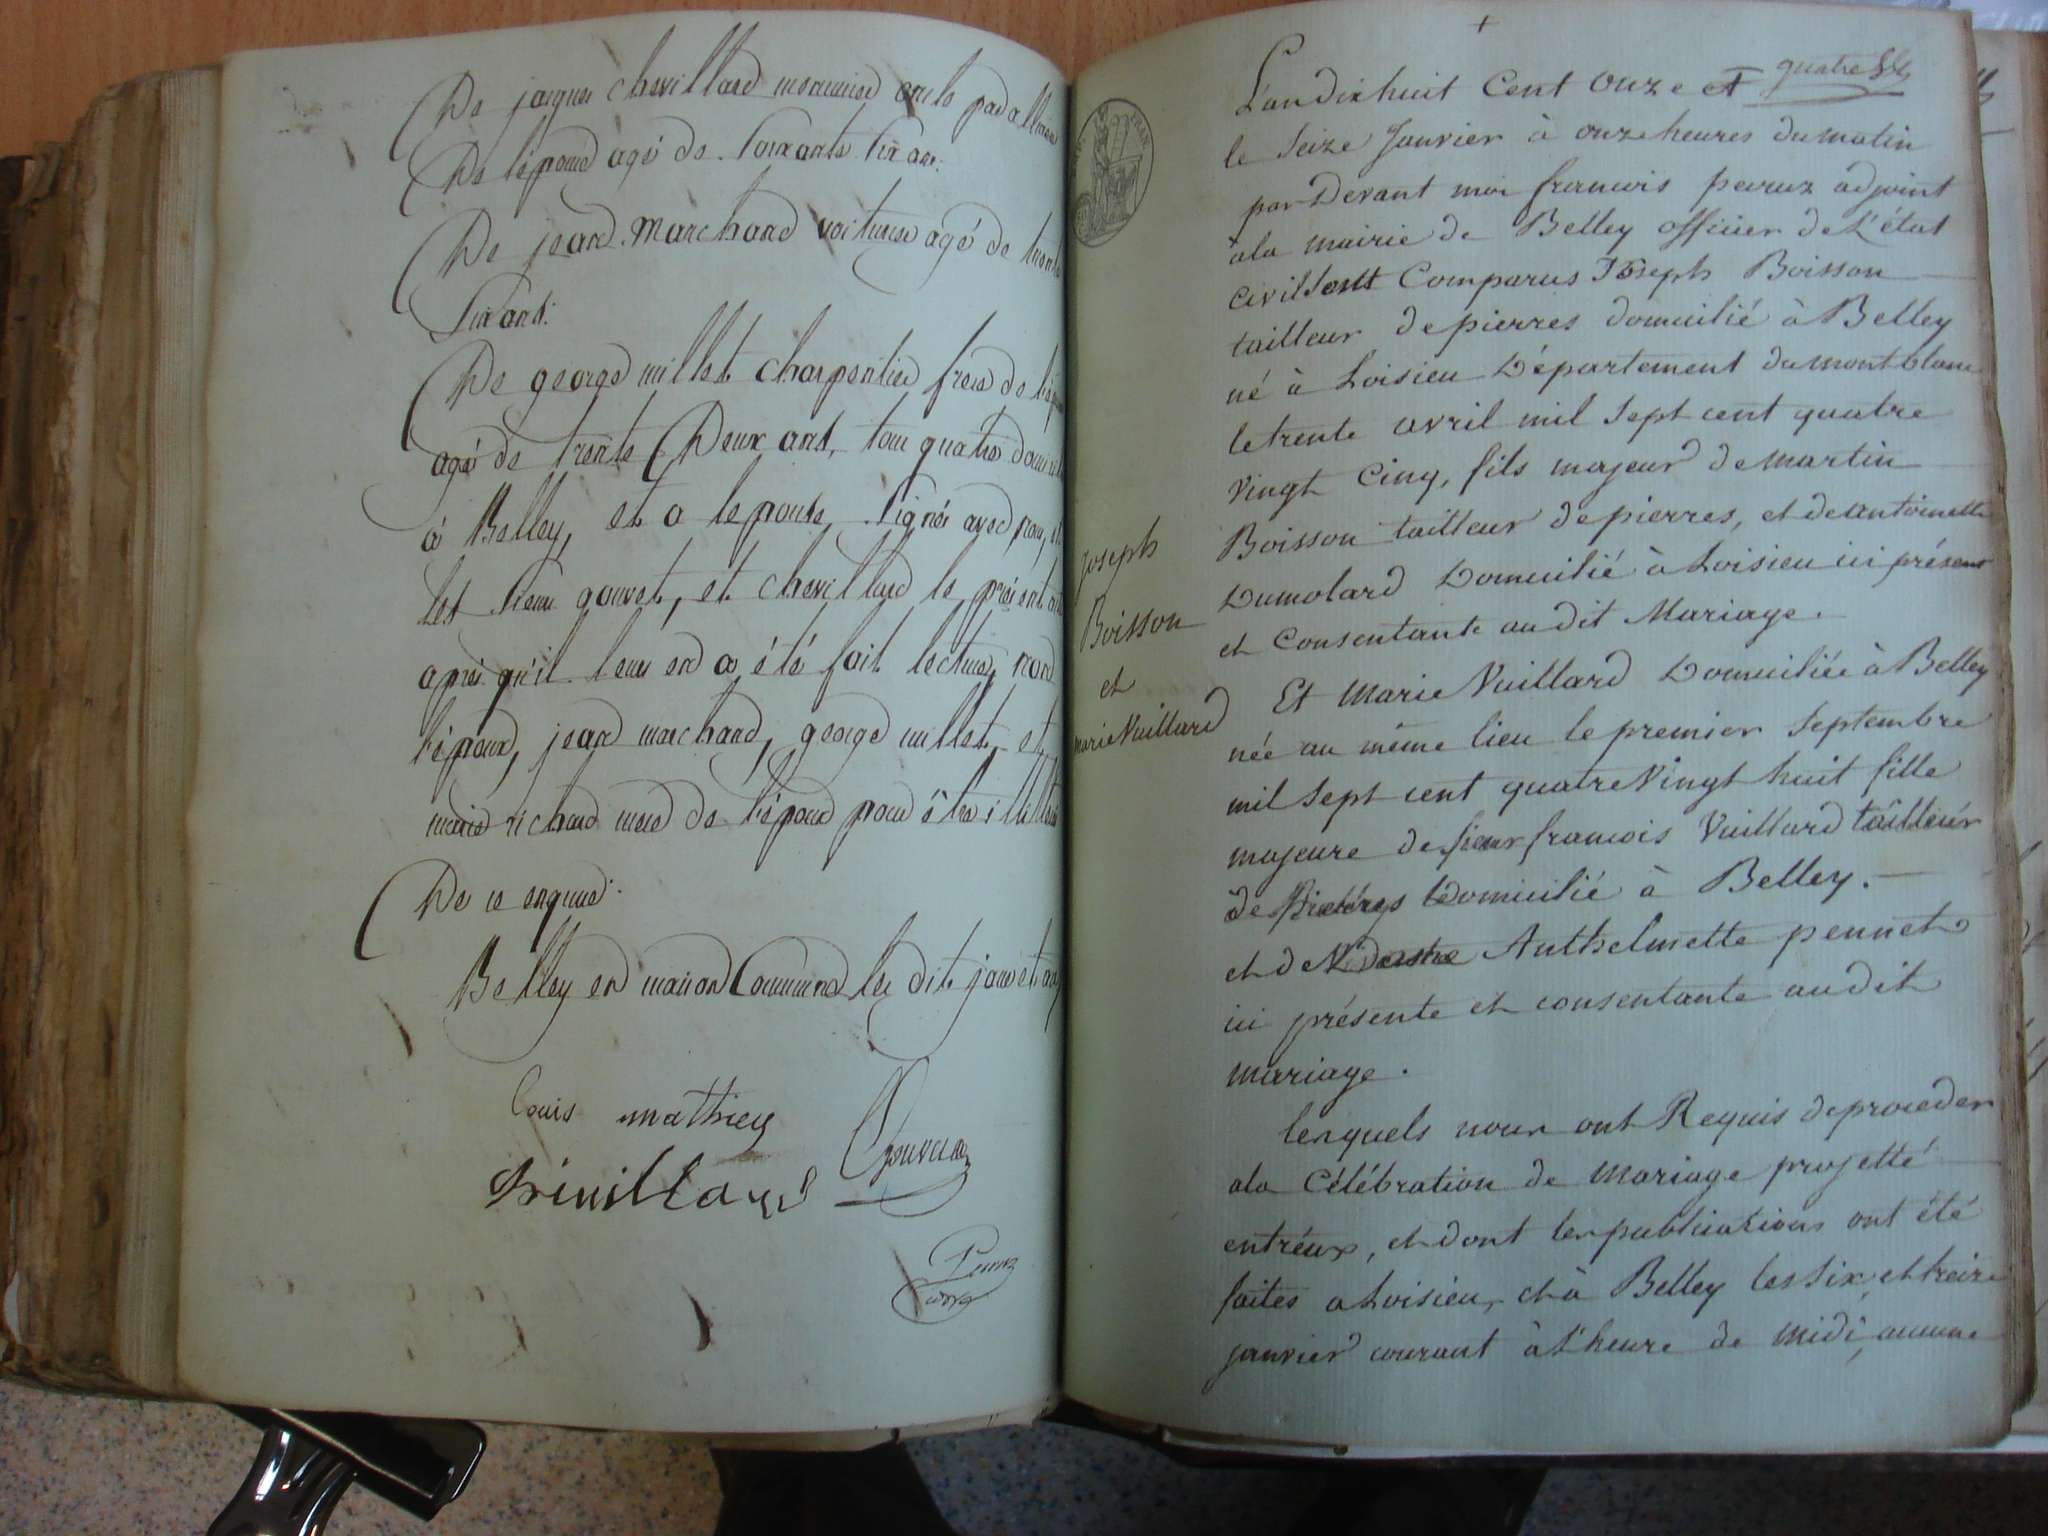 De jacques chevillard menuisier oncle par alliance
De l'épouse agé de soixante six ans.
De jean marchand voiturier agé de trente
six ans.
De george millet charpentier frere de l'épouse
agé de trente Deux ans, tous quatre domiciliés
à Belley, et a lepouse signés avec nous, et
les sieurs gouvet, et chevillard le présent acte
après qu'il leur en a été fait lecture, non
l'époux, jean marchand, george millet, et
marie richard mere de l'époux pour être illiterés
De ce enquis.
Belley en maison Commune les dits jour et an
Louis mathieu
chevillard
Peruz
quatre
L'an dix huit Cent Onze et
le Seize Janvier à onze heures du matin
par Devant moi francois peruz adjoint
ala mairie de Belley officier de L'état
civil sont Comparus Joseph Boisson
tailleur de pierres domicilié à Belley
né à Loisieu Département du mont blanc
le trente avril mil sept cent quatre
vingt Cinq, fils majeur de martin
Boisson tailleur de pierres, et de antoinette
Dumolard Domicilié à Loisieu ici présent
et Consentante audit Mariage.
Joseph
Boisson
et
marie Vuillard
Et Marie Vuillard Domiciliée à Belley
née au même lieu le premier Septembre
mil sept cent quatre Vingt huit fille
majeure de sieur francois Vuillard tailleur
de Pierres Domicilié à Belley.
et de Anthelmette pennet
ici présente et consentante audit
mariage.
lesquels nous ont Requis de proceder
ala Célébration de mariage projetté
entréux, et dont les publications ont été
faites a Loisieu, et à Belley les Six et treize
janvier courant à l'heure de midi, aucune